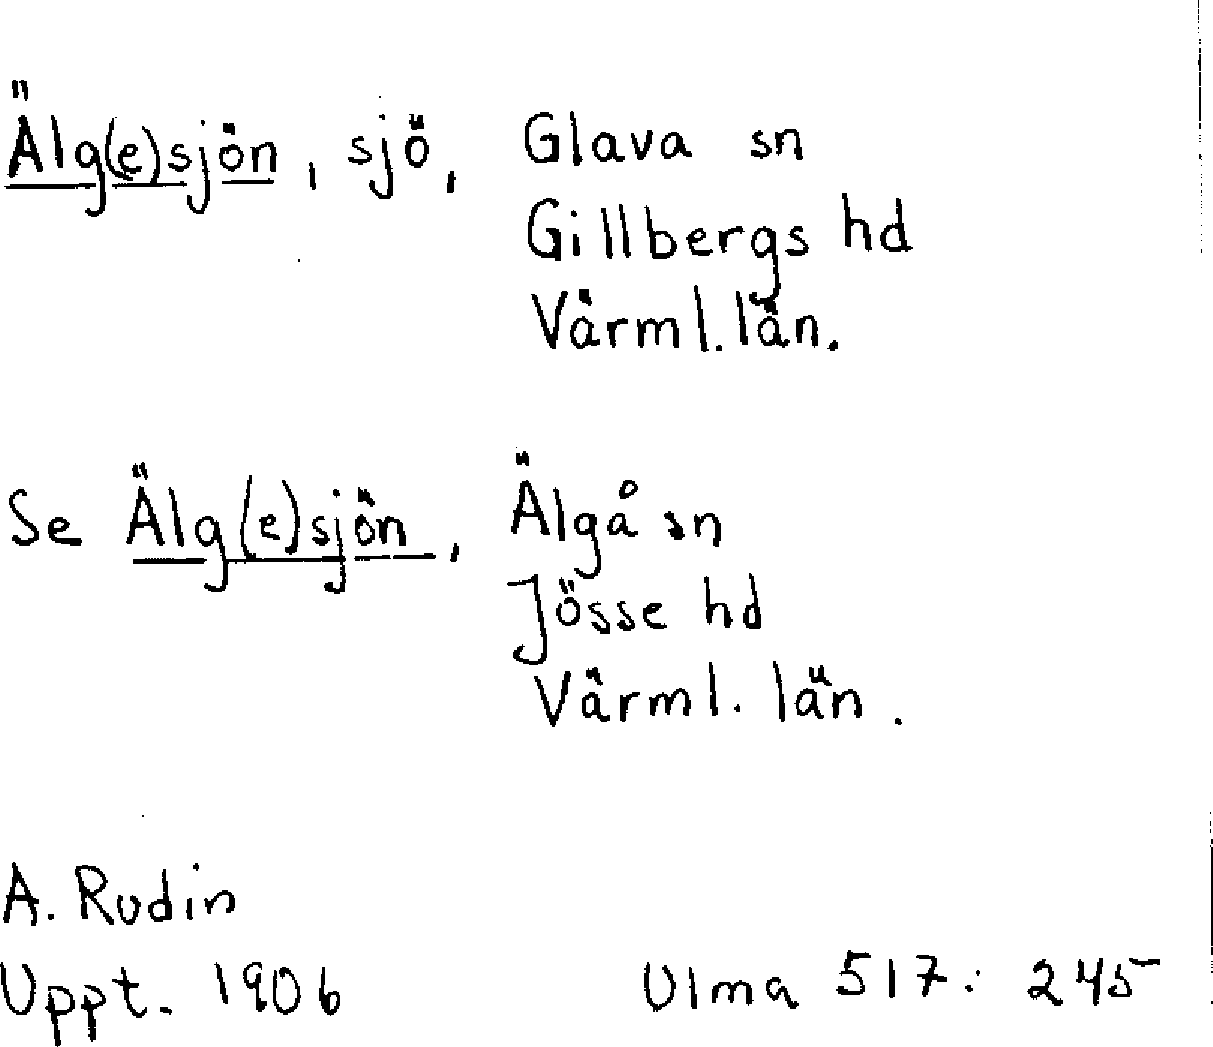 Älg(e)sjön, sjö, Glava sn
Gillbergs hd
Värml. län.
Se Älg(e)sjön, Älgå sn
Jösse hd
Värml. län.
A. Rudin
Uppt. 1906 Ulma 517: 245